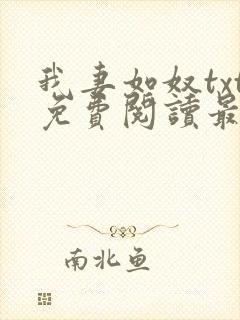 我妻如奴txt
免費閱讀最
南北鱼